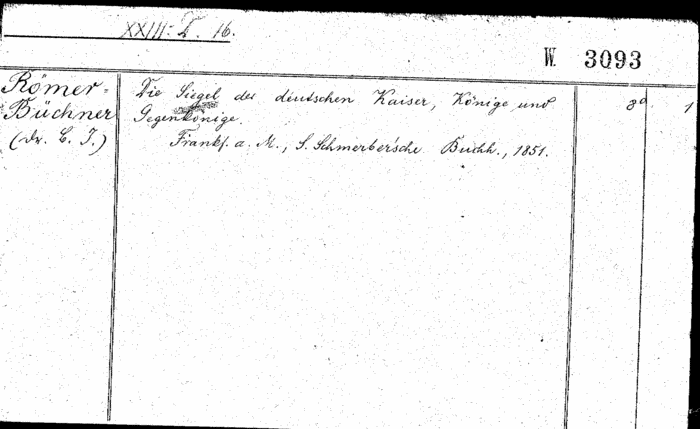 XXIII. L. 16.
W. 3093
Römer-
Büchner
(Dr. C. J.)
Die Siegel der deutschen Kaiser, Könige und
Gegenkönige.
Frankf. a. M., S. Schmerber'sche Buchh., 1851.
8°
1